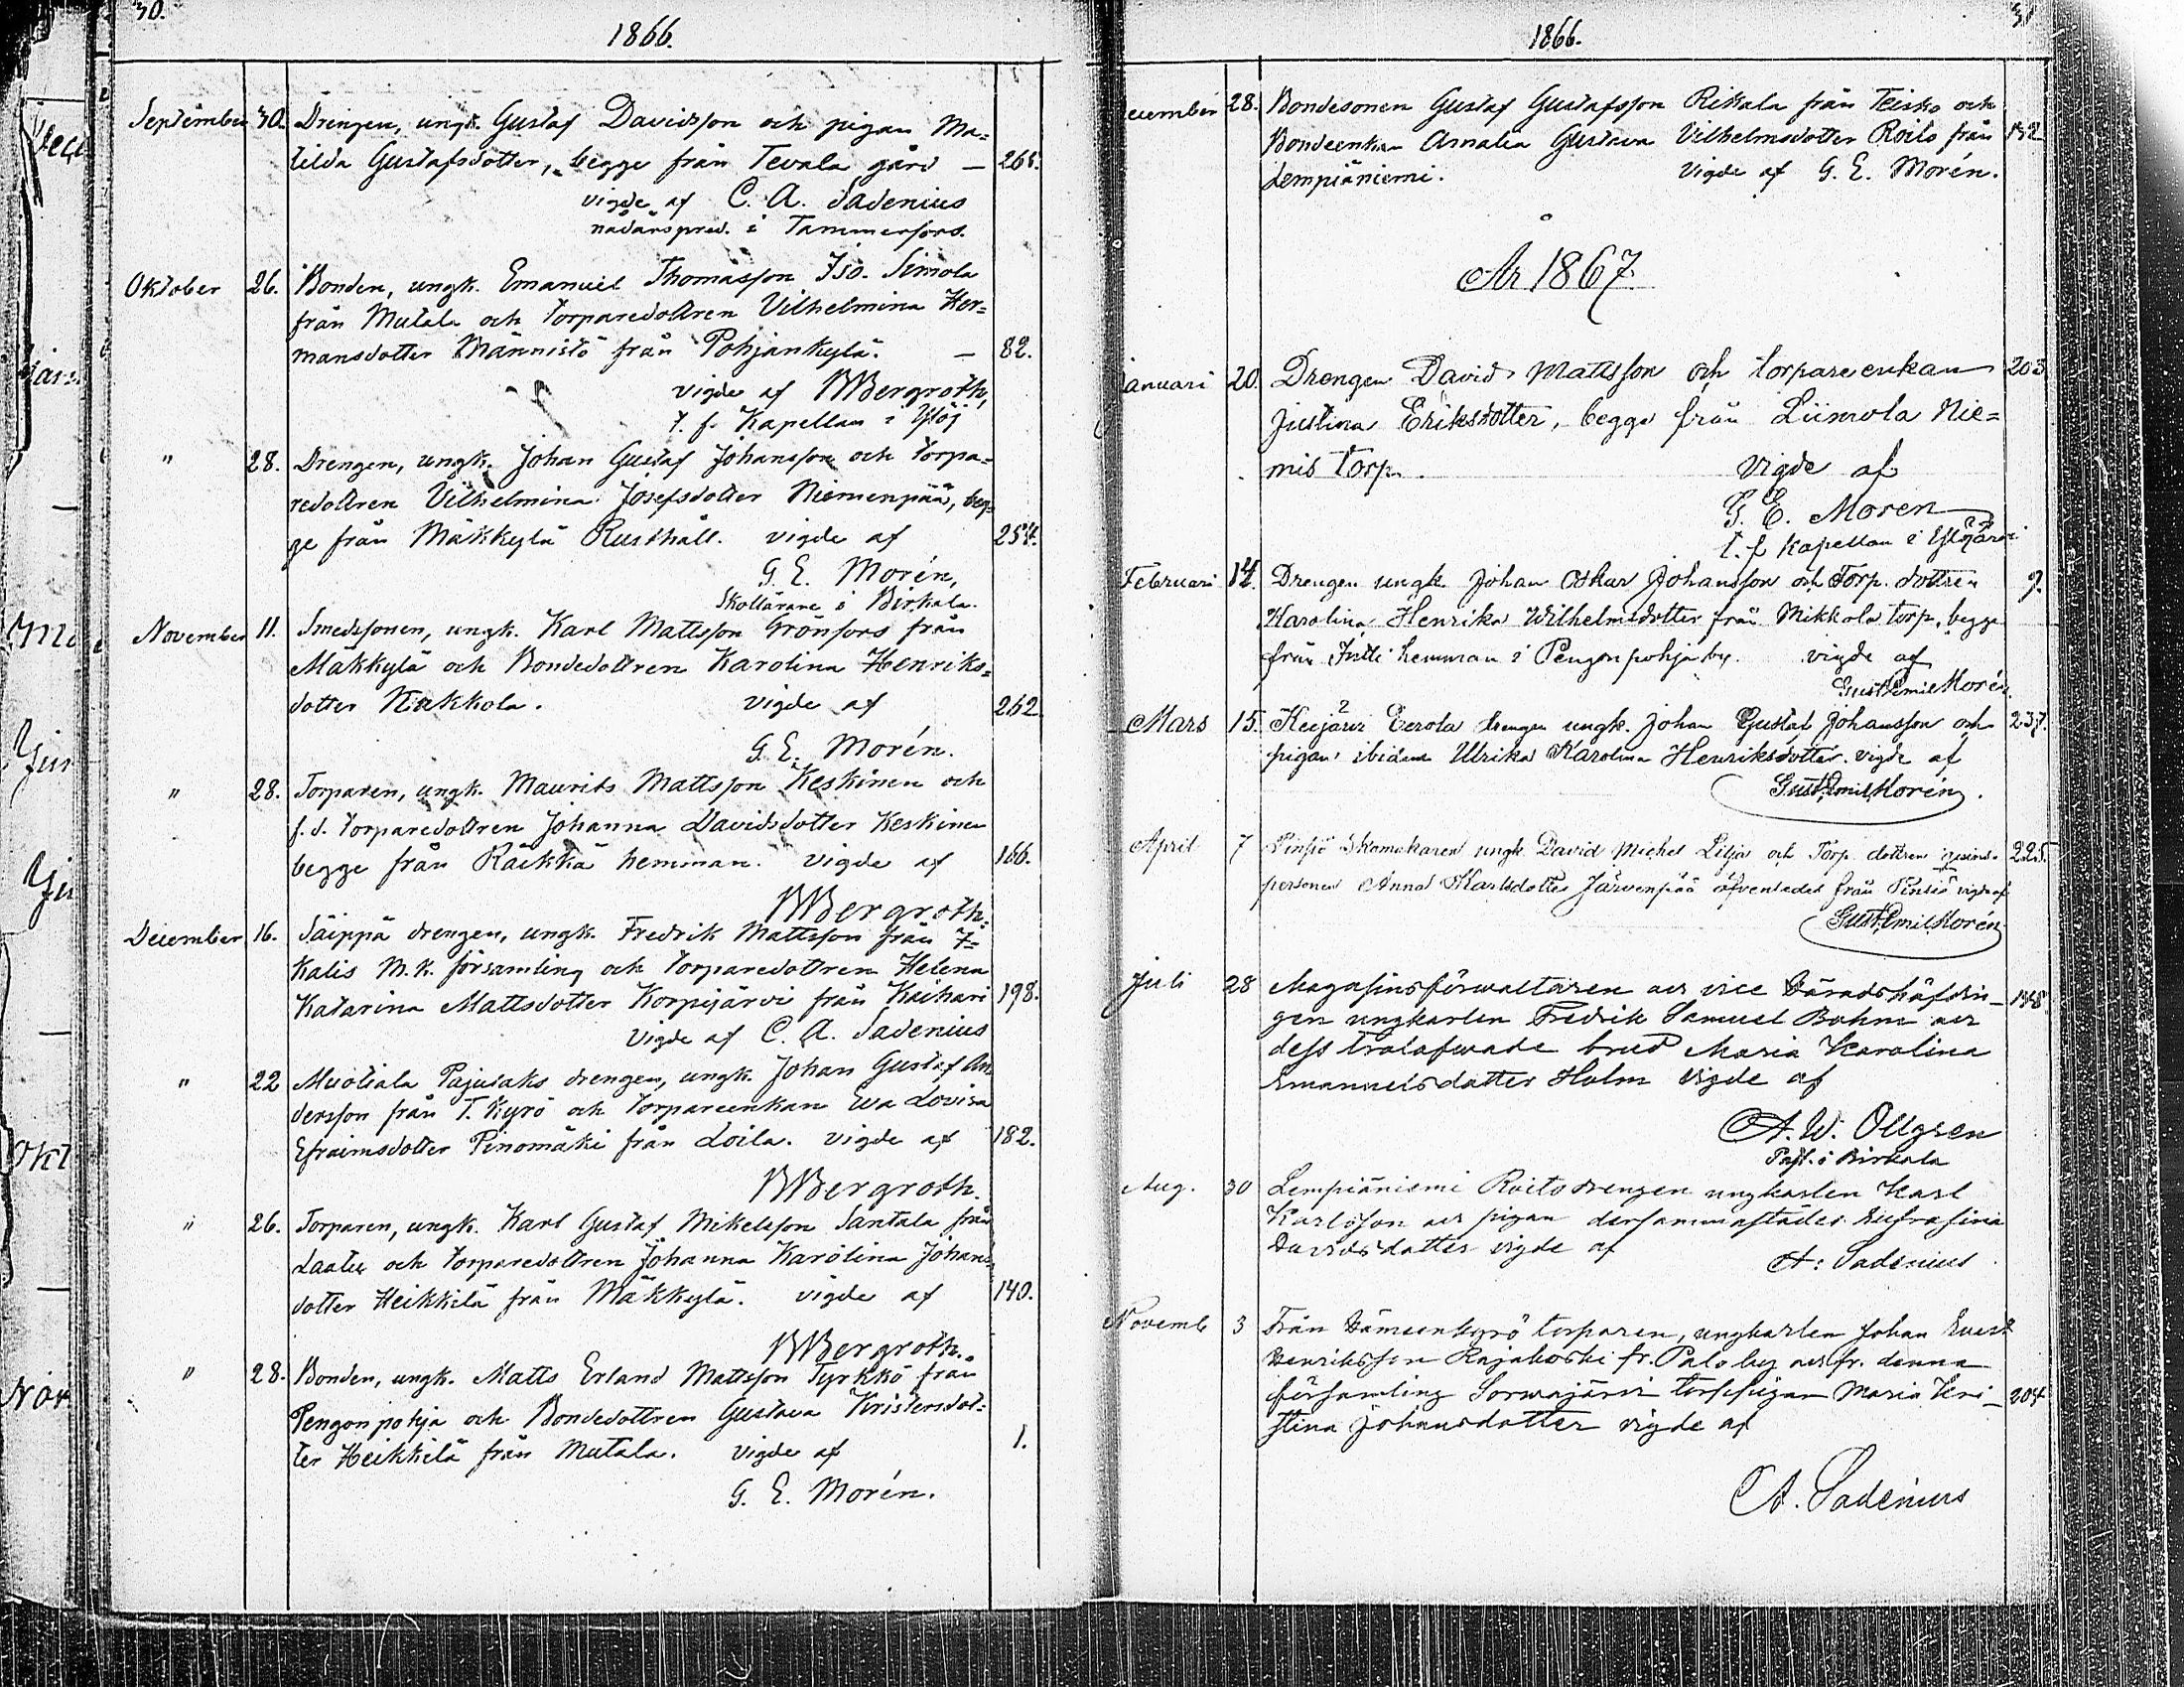 30.
1866.
September 30. Drengen, ungk. Gustaf Davidsson och pigan Ma=
tilda Gustafsdotter, begge från Tevala gård — 265.
vigde af C. A. Sadenius
nådårspred. i Tammerfors.
Oktober 26. Bonden, ungk. Emanuel Thomasson Iso-Simola
från Mutala och torparedottren Vilhelmina Her=
mansdotter Männistö från Pohjankylä. — 82.
vigde af BBergroth,
t. f. Kapellan i Ylöj
" 28. Drengen, ungk. Johan Gustaf Johansson och torpa=
redottren Vilhelmina Josefsdotter Niemenpää, beg=
ge från Mäkkylä Rusthåll. vigde af 254.
G. E. Morén,
Skollärare i Birkala.
November 11. Smedssonen, ungk. Karl Mattsson Grönfors från
Mäkkylä och Bondedottren Karolina Henriks=
dotter Nakkola. vigde af 262.
G. E. Morén.
" 28. Torparen, ungk. Maurits Mattsson Keskinen och
f.d. torparedottren Johanna Davidsdotter Keskinen
begge från Räikkä hemman. vigde af 166.
BBergroth.
December 16. Säippä drengen, ungk. Fredrik Mattsson från I=
kalis M.K. församling och torparedottren Helena
Katarina Mattsdotter Korpijärvi från Kaihari 198.
vigde af C. A. Sadenius
" 22 Muotiala Pajulaks drengen, ungk. Johan Gustaf An
dersson från T. Kyrö och torpareenkan Eva Lovisa
Efraimsdotter Pinomäki från Loila. vigde af 182.
BBergroth.
" 26. Torparen, ungk. Karl Gustaf Mikelsson Santala från
Laatu och torparedottren Johanna Karolina Johans
dotter Heikkilä från Mäkkylä. vigde af 140.
BBergroth.
" 28. Bonden, ungk. Matts Erland Mattsson Tyrkkö från
Pengonpohja och Bondedottren Gustava Kristersdot=
ter Heikkilä från Mutala. vigde af 1.
G. E. Morén.
31
1866.
ecember 28. Bondesonen Gustaf Gustafsson Rikala från Teisko och
Bondeenkan Amalia Gustava Vilhelmsdotter Roito från 132
Lempiäniemi. vigde af G. E. Morén.
År 1867.
anuari 20. Drengen David Mattsson och torpareenkan 203
Justina Eriksdotter, begge från Liimola Nie=
mis torp. vigde af
G. E. Moren
t. f. kapellan i Ylöjärvi
Februari 14. Drengen ungk. Johan Oskar Johansson och Torp. dottren 9.
Karolina Henrika Wilhelmsdotter från Mikkola torp, begge
från Intti hemman i Pengonpohja by. vigde af
Gust Emil Morén
Mars 15. Keijärvi Eerola drengen ungk. Johan Gustaf Johansson och 237.
pigan ibidem Ulrika Karolina Henriksdotter. vigde af
Gust Emil Morén.
April 7 Pinsiö Skomakaren ungk. David Michel Lilja och Torp. dottren 225.
personen Anna Karlsdotter Järvenpää äfvenledes från Pinsiö vigde af
Gust Emil Morén
Juli 28 Magasinsförwaltaren och vice Häradshöfdin- 158.
gen ungkarlen Fredrik Samuel Bohm och
dess trolofwade brud Maria Karolina
Emanuelsdotter Holm vigde af
A. W. Ollgren
Past. i Birkala
Aug. 30 Lempiäniemi Roito drengen ungkarlen Karl
Karlsson och pigan dersammastädes Eufrosina
Davidsdotter vigde af
A. Sadenius
Novemb 3 Från Hämeenkyrö torparen, ungkarlen Johan Evert
Henriksson Rajakoski fr. Palo by och fr. denna
församling Sorwajärvi torp pigan Maria Kri- 204
stina Johansdotter vigde af
CA. Sadenius